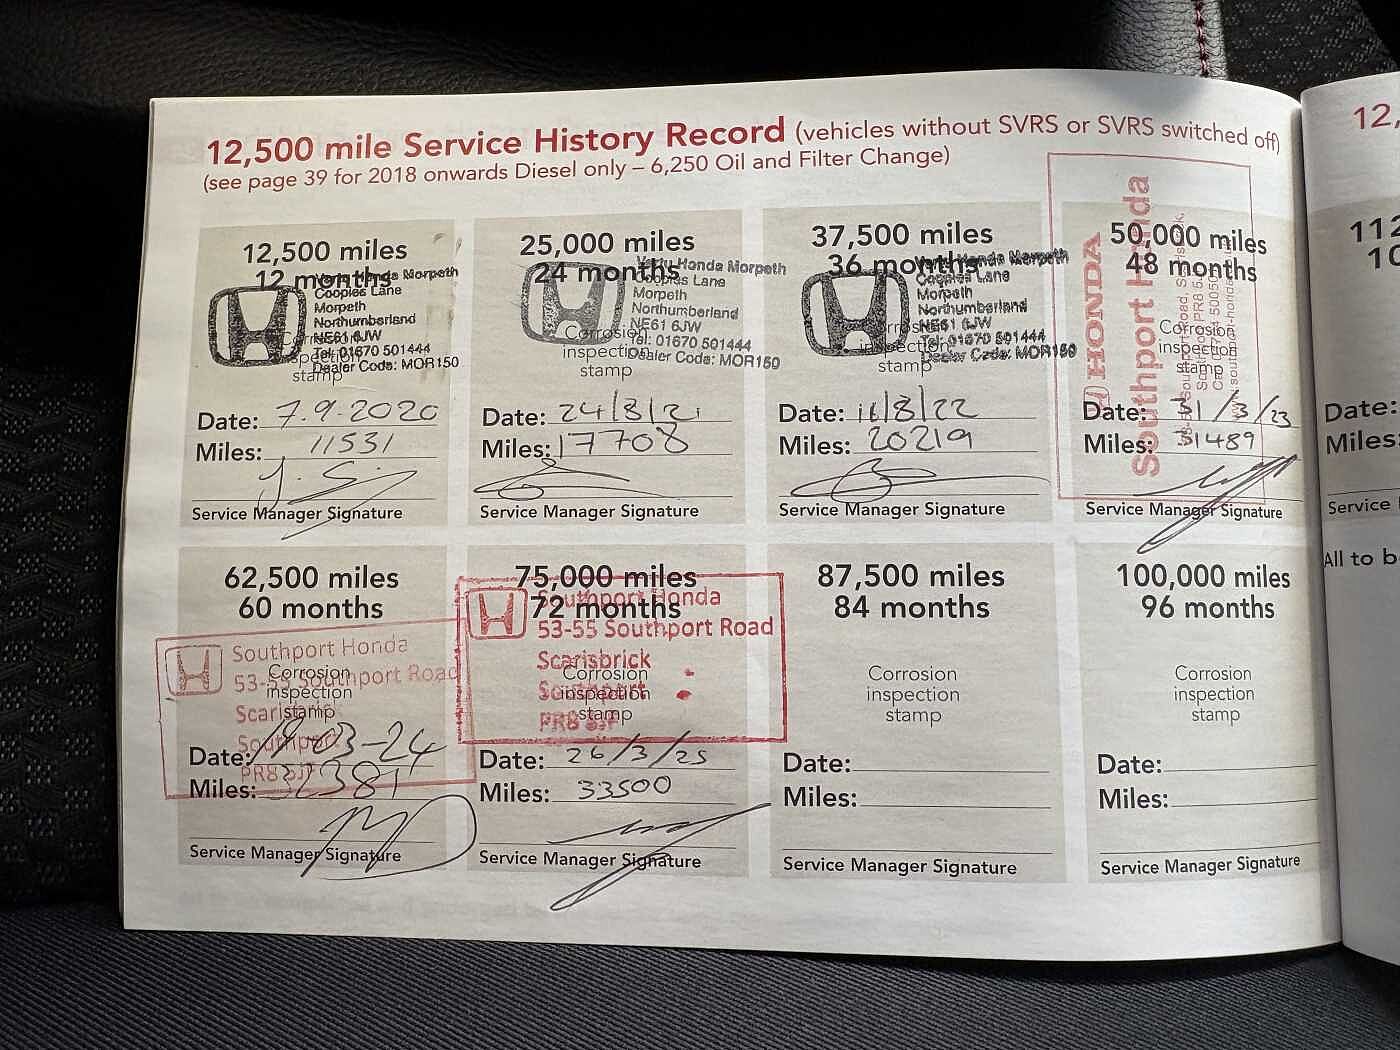 12,500 mile Service History Record (vehicles without SVRS or SVRS switched off)
(see page 39 for 2018 onwards Diesel only – 6,250 Oil and Filter Change)
12,500 miles
12 months
Vertu Honda Morpeth
Coopies Lane
Morpeth
Northumberland
NE61 6JW
Tel: 01670 501444
Dealer Code: MOR150
Corrosion
inspection
stamp
Date: 7.9.2020
Miles: 11531
Service Manager Signature
25,000 miles
24 months
Vertu Honda Morpeth
Coopies Lane
Morpeth
Northumberland
NE61 6JW
Tel: 01670 501444
Dealer Code: MOR150
Corrosion
inspection
stamp
Date: 24/8/21
Miles: 17708
Service Manager Signature
37,500 miles
36 months
Vertu Honda Morpeth
Coopies Lane
Morpeth
Northumberland
NE61 6JW
Tel: 01670 501444
Dealer Code: MOR150
Corrosion
inspection
stamp
Date: 16/8/22
Miles: 20219
Service Manager Signature
50,000 miles
48 months
HONDA
Southport Honda
Corrosion
inspection
stamp
Date: 31/3/23
Miles: 31489
Service Manager Signature
62,500 miles
60 months
Southport Honda
53-55 Southport Road
Scarisbrick
Southport
PR8 5JF
Corrosion
inspection
stamp
Date: 19-03-24
Miles: 32381
Service Manager Signature
75,000 miles
72 months
Southport Honda
53-55 Southport Road
Scarisbrick
Southport
PR8 5JF
Corrosion
inspection
stamp
Date: 26/3/25
Miles: 33500
Service Manager Signature
87,500 miles
84 months
Corrosion
inspection
stamp
Date:
Miles:
Service Manager Signature
100,000 miles
96 months
Corrosion
inspection
stamp
Date:
Miles:
Service Manager Signature
12,
112
10
Date:
Miles:
Service
All to b